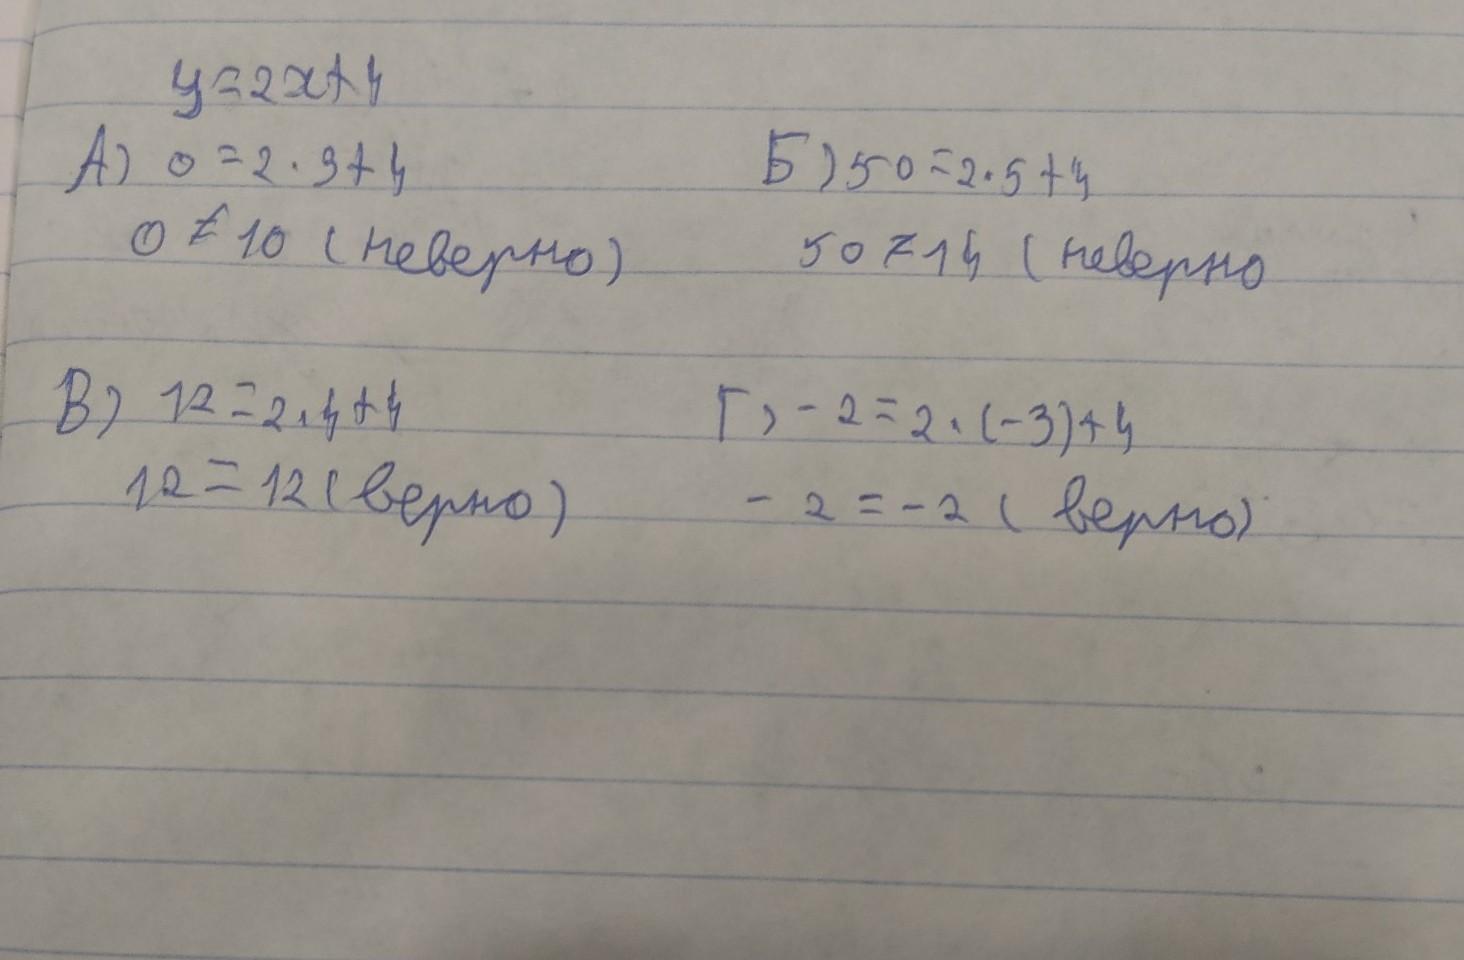 y=2x+4
А) 0=2·3+4
0≠10 (неверно)
Б) 50=2·5+4
50≠14 (неверно
В) 12=2·4+4
12=12 (верно)
Г) -2=2·(-3)+4
-2=-2 (верно)